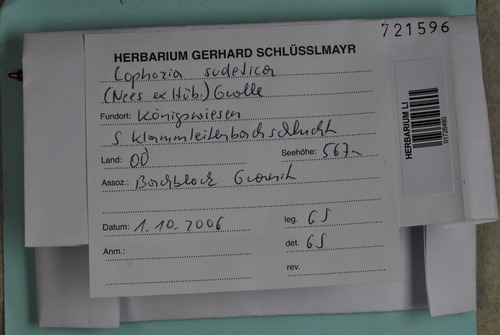 721596
HERBARIUM GERHARD SCHLÜSSLMAYR
Lophozia sudetica
(Nees ex Hüb.) Grolle
Fundort: Königswiesen
S Klammleitenbachschlucht
Land: OÖ Seehöhe: 567m
Assoz.: Bachblock Granit
Datum: 1.10.2006 leg. GS
Anm.: det. GS
rev.
HERBARIUM LI